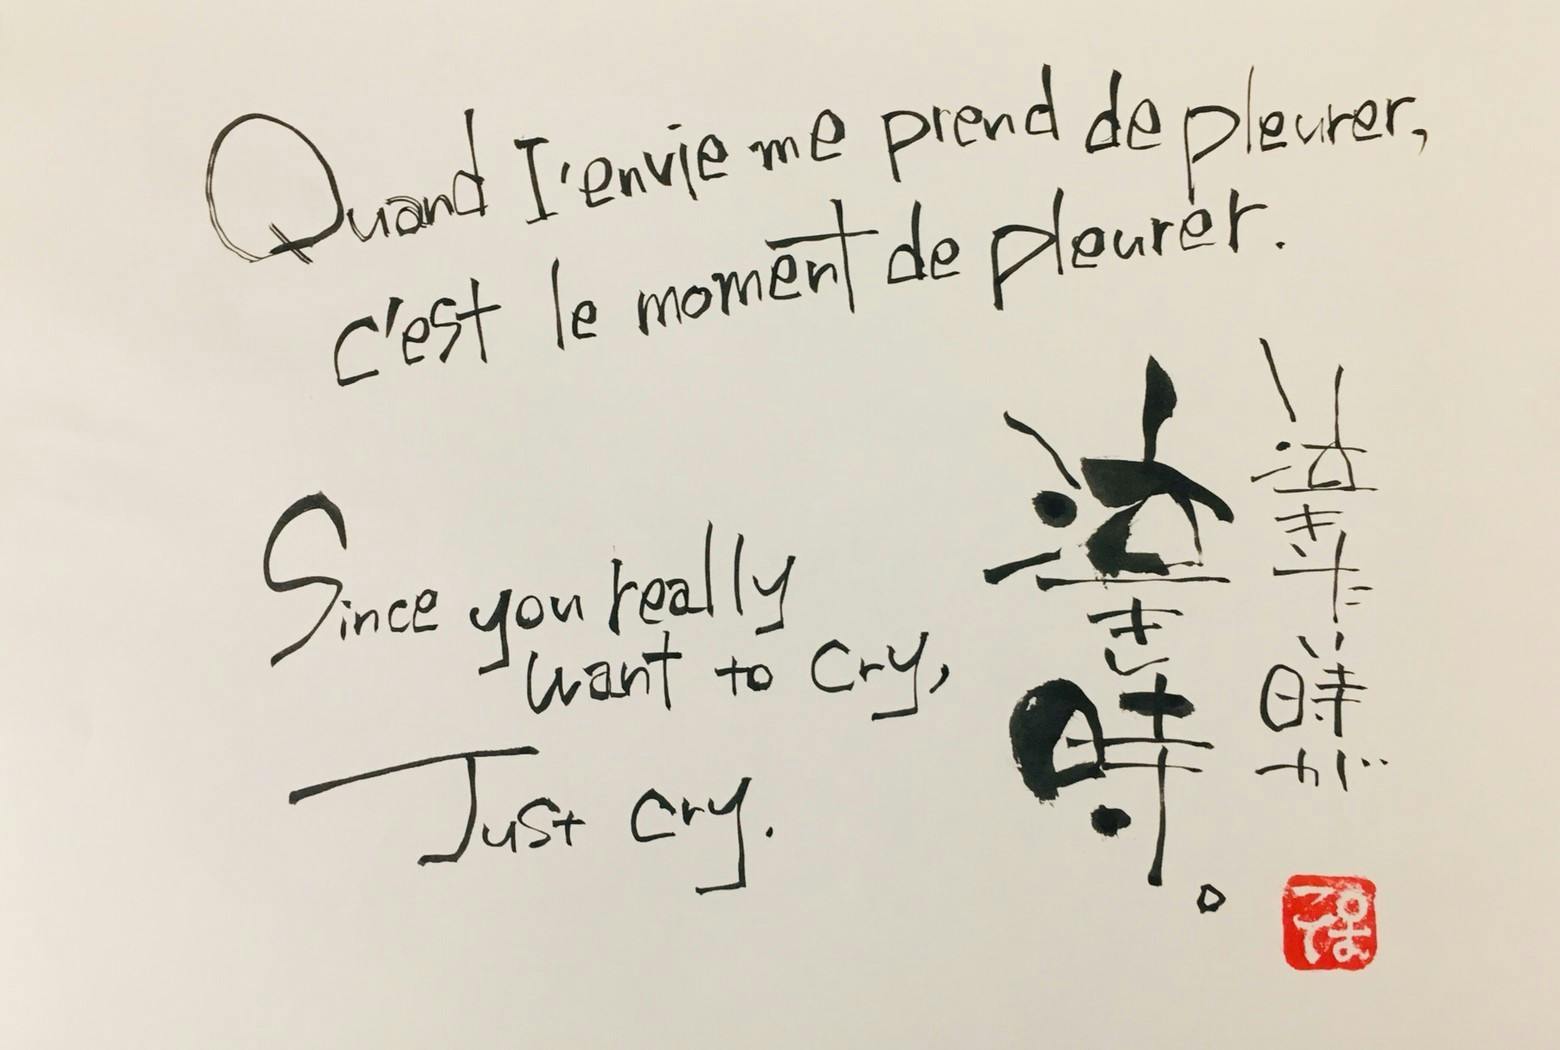 Quand l'envie me prend de pleurer,
c'est le moment de pleurer.
Since you really
want to cry,
Just cry.
泣きたい時が
泣き時。